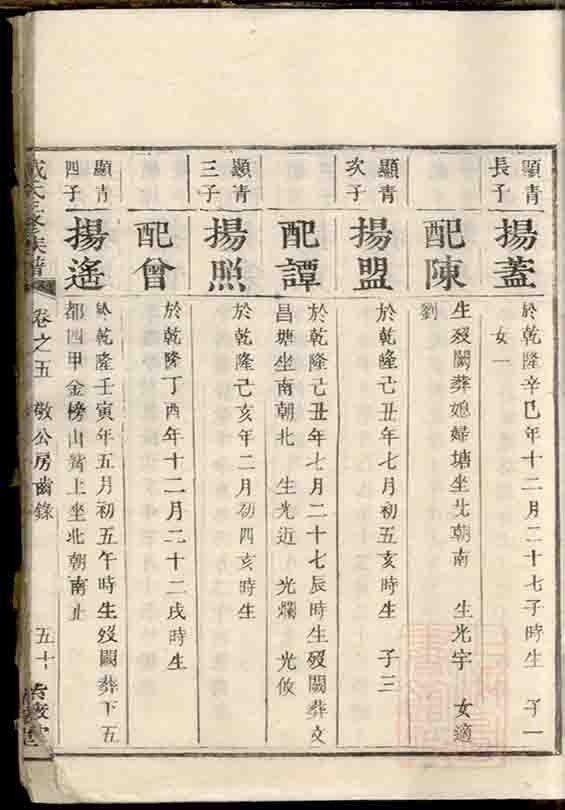 顯青
長子
揚蓋
於乾隆辛巳年十二月二十七子時生 子一
女一
配陳
生歿闕葬媳婦塘坐北朝南 生光宇 女適
劉
顯青
次子
揚盟
於乾隆己丑年七月初五亥時生 子三
配譚
於乾隆己丑年七月二十七辰時生歿闕葬文
昌塘坐南朝北 生光近 光爛 光攸
顯青
三子
揚照
於乾隆己亥年二月初四亥時生
配曾
於乾隆丁酉年十二月二十二戌時生
顯青
四子
揚遙
於乾隆壬寅年五月初五午時生歿闕葬下五
都四甲金榜山背上坐北朝南止
氏三修族譜 卷之五 敬公房齒錄 五十